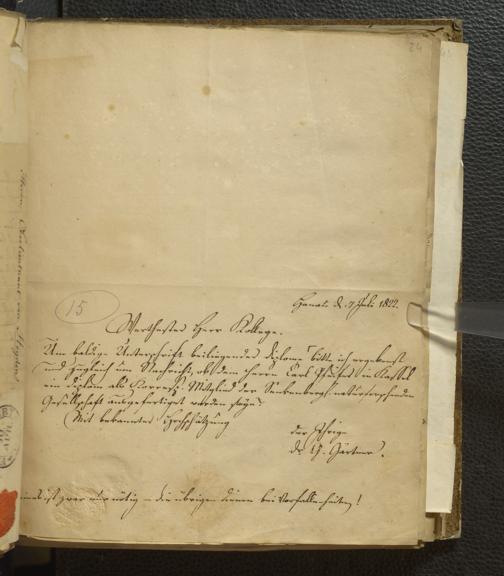 24
Hanau d. 7 Juli 1822.
15
Werthester Herr Kollege.
Um baldige Unterschrift beiliegenden Diploms bitt ich ergebenst
und zugleich um Nachricht, ob dem Herrn Carl in Kassel
ein Diplom als Korresp. Mitglied der naturforschenden
Gesellschaft ausgefertiget werden
Mit bekannter Hochschätzung
der Ihrige
Dr. G. Gärtner.
ist zwar nur nötig – die übrigen dienen bei Vorfallenheiten!